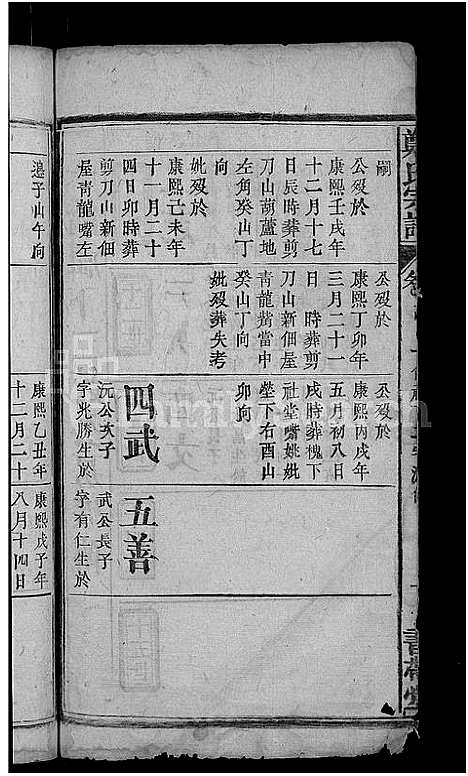 鄭氏宗譜
嗣
公歿於
康熙壬戌年
十二月十七
日辰時葬剪
刀山葫蘆地
左角癸山丁
向
妣歿於
康熙己未年
十一月二十
四日卯時葬
剪刀山新佃
屋青龍嘴左
公歿於
康熙丁卯年
三月二十一
日 時葬剪
刀山新佃屋
青龍嘴當中
癸山丁向
妣歿葬失考
公歿於
康熙丙戌年
五月初八日
戌時葬槐下
社堂嘴姚妣
塋下右酉山
卯向
四武
沅公次子
字兆勝生於
五善
武公長子
字有仁生於
邊子山午向
康熙乙丑年
十二月二十
康熙戊子年
八月十四日